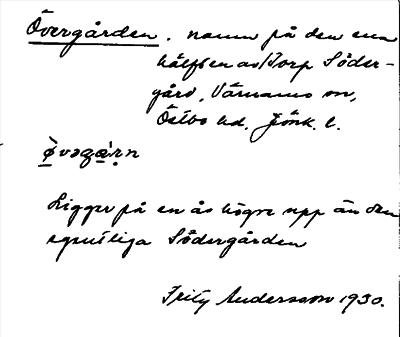 Övergården. namn på den ena
hälften av Torp Söder-
gård, Värnamo sn,
Östbo hd. Jönk. l.
övəgɑ̀ṛn
Ligger på en ås högre upp än den
egentliga Södergården
Fritz Andersson 1930.